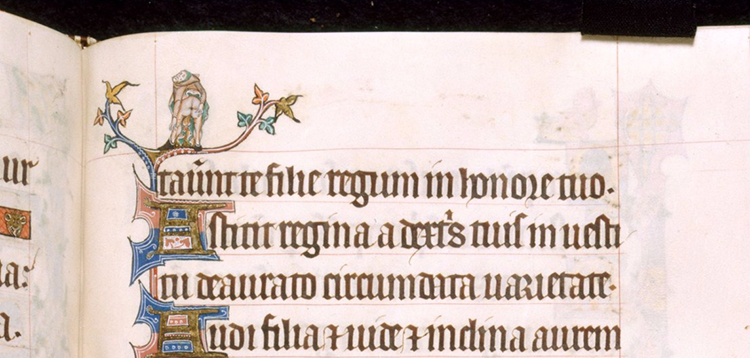 ur
a.
taūnt te filie regum in honore tuo.
Astitit regina a dextˢs tuis in uesti
tu deaurato circumdata uarietate.
Audi filia ⁊ uide ⁊ inclina aurem